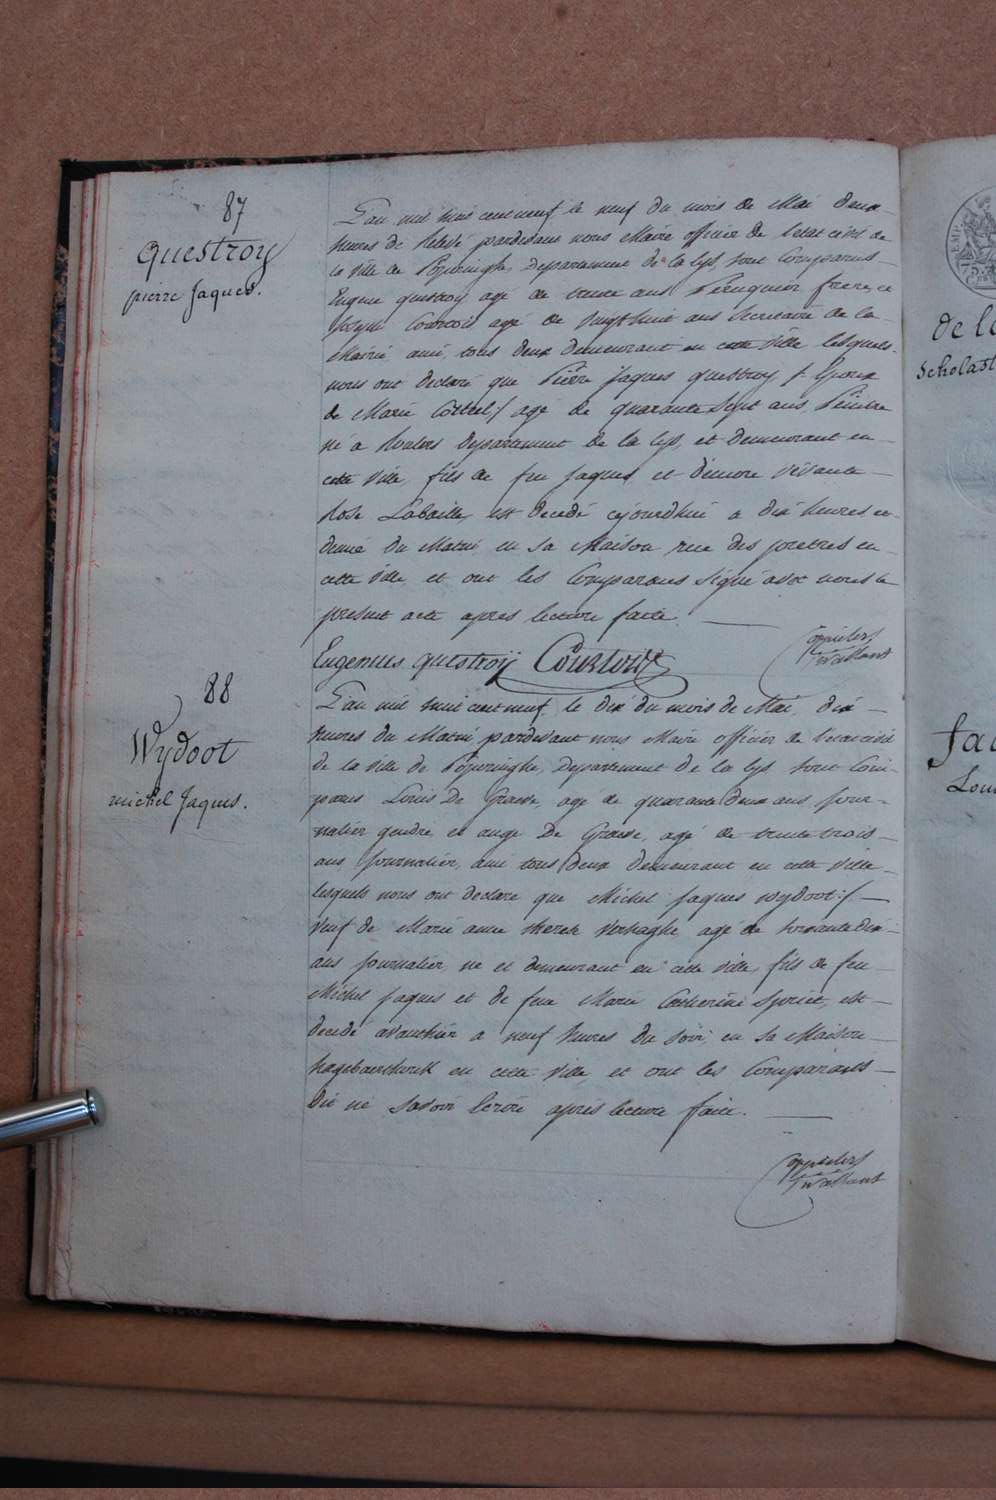 87
Questroy
pierre Jaques.
L'an mil huit cent neuf le neuf du mois de Mai deux
heures de relevé pardevant nous Maire officier de l'etat civil de
la ville de Poperinghe, Departement de la Lys, sont Comparus
Eugene questroy agé de trente ans Perruquier frere, et
Joseph Courtois agé de vingt huit ans secretaire de la
Mairie ami, tous deux demeurant en cette ville lesquels
nous ont declaré que Pierre Jaques questroy, Epoux
de Marie Cottrel, agé de quarante sept ans, Peintre
né a Roulers departement de la Lys, et demeurant en
cette ville, fils de feu Jaques et d'encore vivante
Rose Labaille, est decedé cejourdhui a dix heures et
demie du Matin en sa Maison rue des pretres en
cette ville et ont les Comparans signé avec nous le
present acte apres lecture faite.
Eugenius questroÿ Courtois
88
Wydoot
michel Jaques.
L'an mil huit cent neuf, le dix du mois de Mai, dix
heures du Matin pardevant nous Maire officier de l'etat civil
de la ville de Poperinghe, Departement de la Lys sont Com-
parus Louis De Graeve, age de quarante deux ans jour-
nalier gendre, et ange De Graeve, agé de trente trois
ans Journalier, ami tous deux demeurant en cette ville
lesquels nous ont declare que Michel Jaques wydoot
veuf de Marie anne therese Verhaghe agé de soixante dix
ans journalier, né et demeurant en cette ville, fils de feu
Michel Jaques et de feue Marie Catherine Spriet, est
decedé avanthier a neuf heures du soir, en sa Maison
en cette ville, et ont les Comparants
Dit ne savoir Ecrire apres lecture faite.
de l
Scholast
fa
Lou